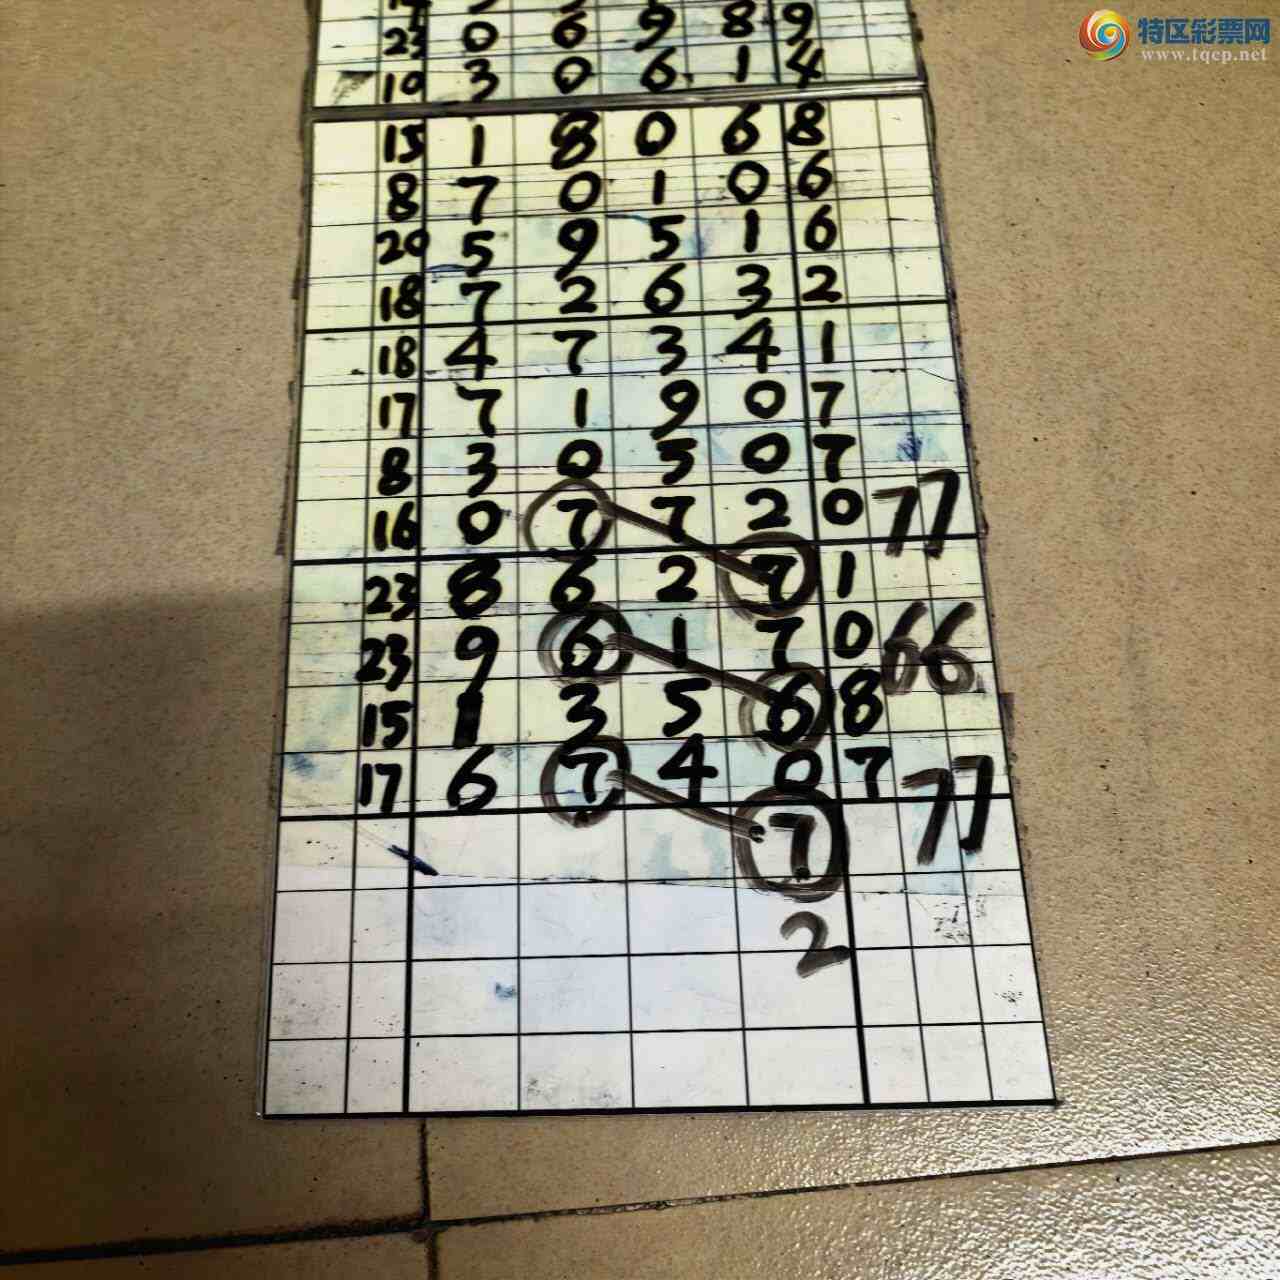 特区彩票网
www.tqcp.net
23 0 6 9 8 9
19 3 0 6 1 4
15 1 8 0 6 8
8 7 0 1 0 6
20 5 9 5 1 6
18 7 2 6 3 2
18 4 7 3 4 1
17 7 1 9 0 7
8 3 0 5 0 7
16 0 7 7 2 0 77
23 8 6 2 7 1
23 9 6 1 7 0 66
15 1 3 5 6 8
17 6 7 4 0 7 77
7
2